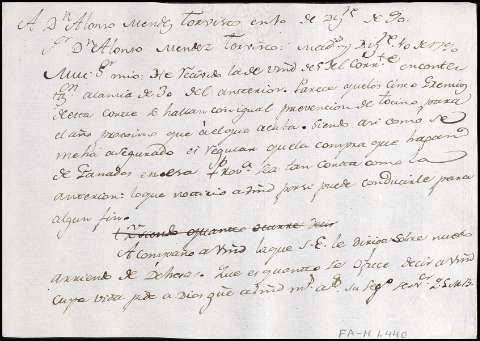 A Dn Alonso Mendez Torvisco en 10 de Dize de 90.
Sr Dn Alonso Mendez Torvisco: Madrid y Dize 10 de 1790
Muy Sr mio: He recivido la de Vmd de 5 del Corrte en contes
tn a la mia de 30 del anterior. Parece que los Cinco Gremios
de esta Corte se hallan con igual prevencion de tocino para
el año proximo que a el que acaba. Siendo asi como se
me ha asegurado es regular que la compra que hagan
de Ganados en esa Prova sea tan corta como la
anterior: lo que noticio a Vmd por si puede conducirle para
algun fin.
quanto ocurre
Acompaño a Vmd la que S.E. le dirige sobre nuebo
arriendo de Dehesas. Que es quanto se ofrece decir a Vmd
cuya vida pide a Dios gue a Vmd ms as su Sego Servr
FA-M 1.440